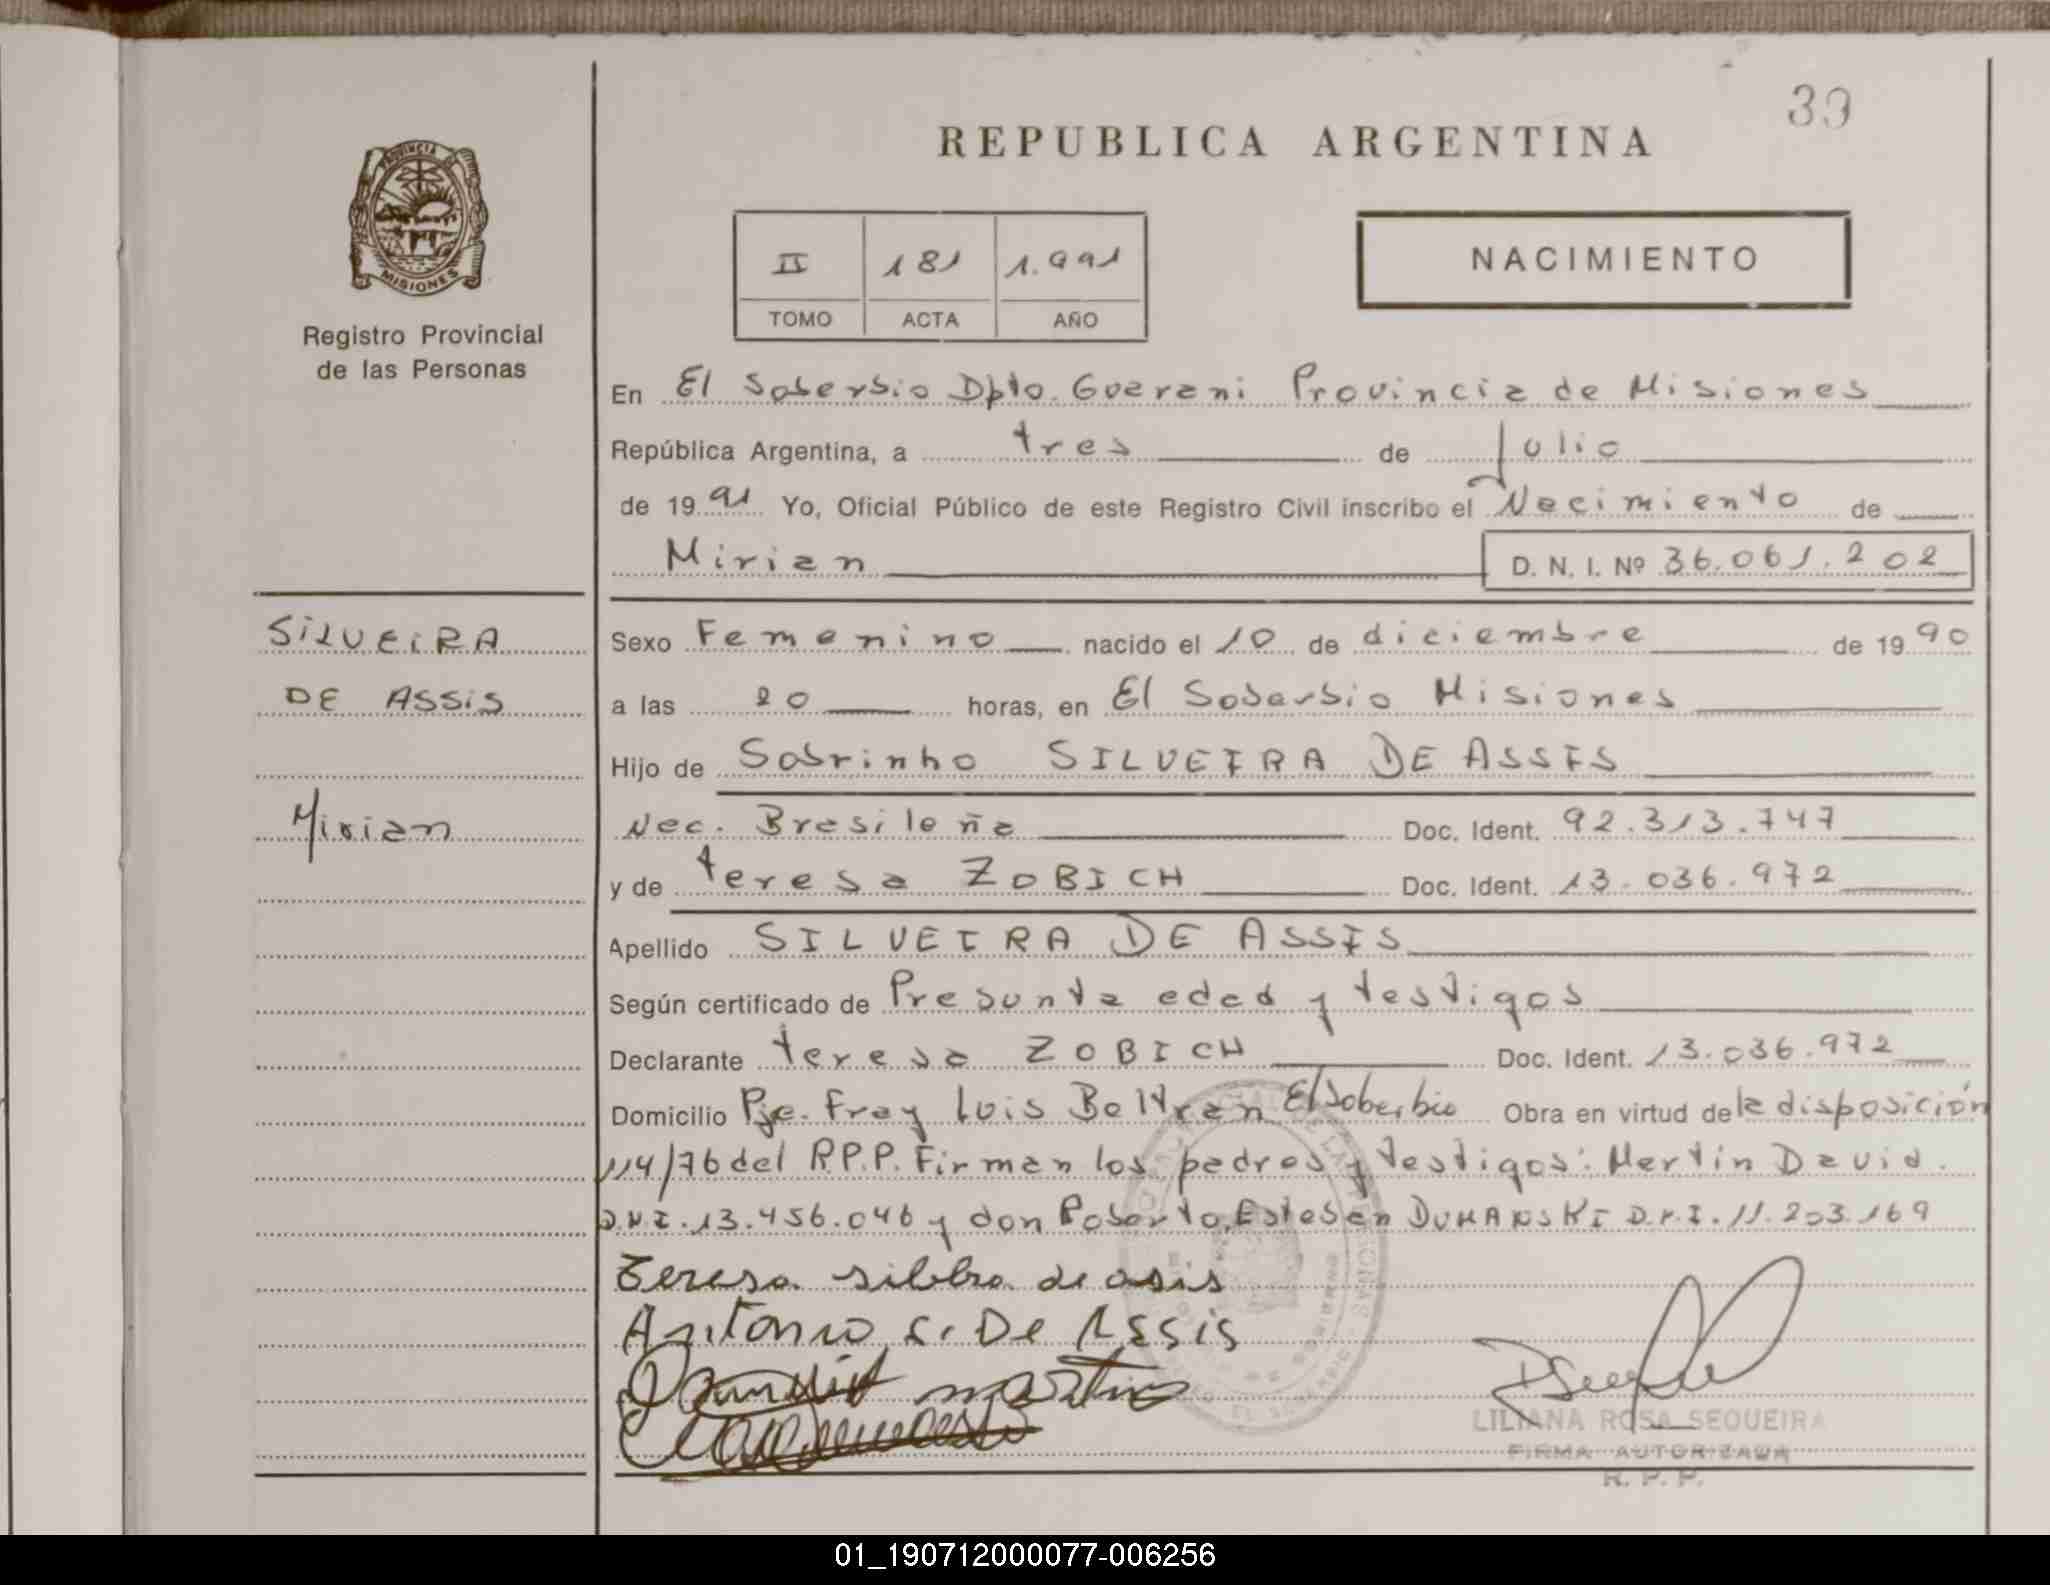 33
REPUBLICA ARGENTINA
PROVINCIA DE
MISIONES
Registro Provincial
de las Personas
II 181 1.991
TOMO ACTA AÑO
NACIMIENTO
En El Soberbio Dpto. Guarani Provincia de Misiones
República Argentina, a tres de Julio
de 1991 Yo, Oficial Público de este Registro Civil inscribo el Nacimiento de
Mirian D. N. I. Nº 36.061.202
SILVEIRA
DE ASSIS
Mirian
Sexo Femenino nacido el 10 de diciembre de 1990
a las 20 horas, en El Soberbio Misiones
Hijo de Sobrinho SILVEIRA DE ASSIS
Nac. Brasileña Doc. Ident. 92.313.747
y de teresa ZOBICH Doc. Ident. 13.036.972
Apellido SILVEIRA DE ASSIS
Según certificado de Presunta edad y testigos
Declarante teresa ZOBICH Doc. Ident. 13.036.972
Domicilio Pje. Fray Luis Beltran El Soberbio Obra en virtud de la disposición
114/76 del R.P.P. Firman los padres y testigos: Martin David.
D.N.I. 13.456.046 y don Roberto Esteban DUMANSKI D.N.I. 11.203.169
Teresa silbra de asis
Antonio S. De Assis
martin
LILIANA ROSA SEQUEIRA
FIRMA AUTORIZADA
R. P. P.
01_190712000077-006256